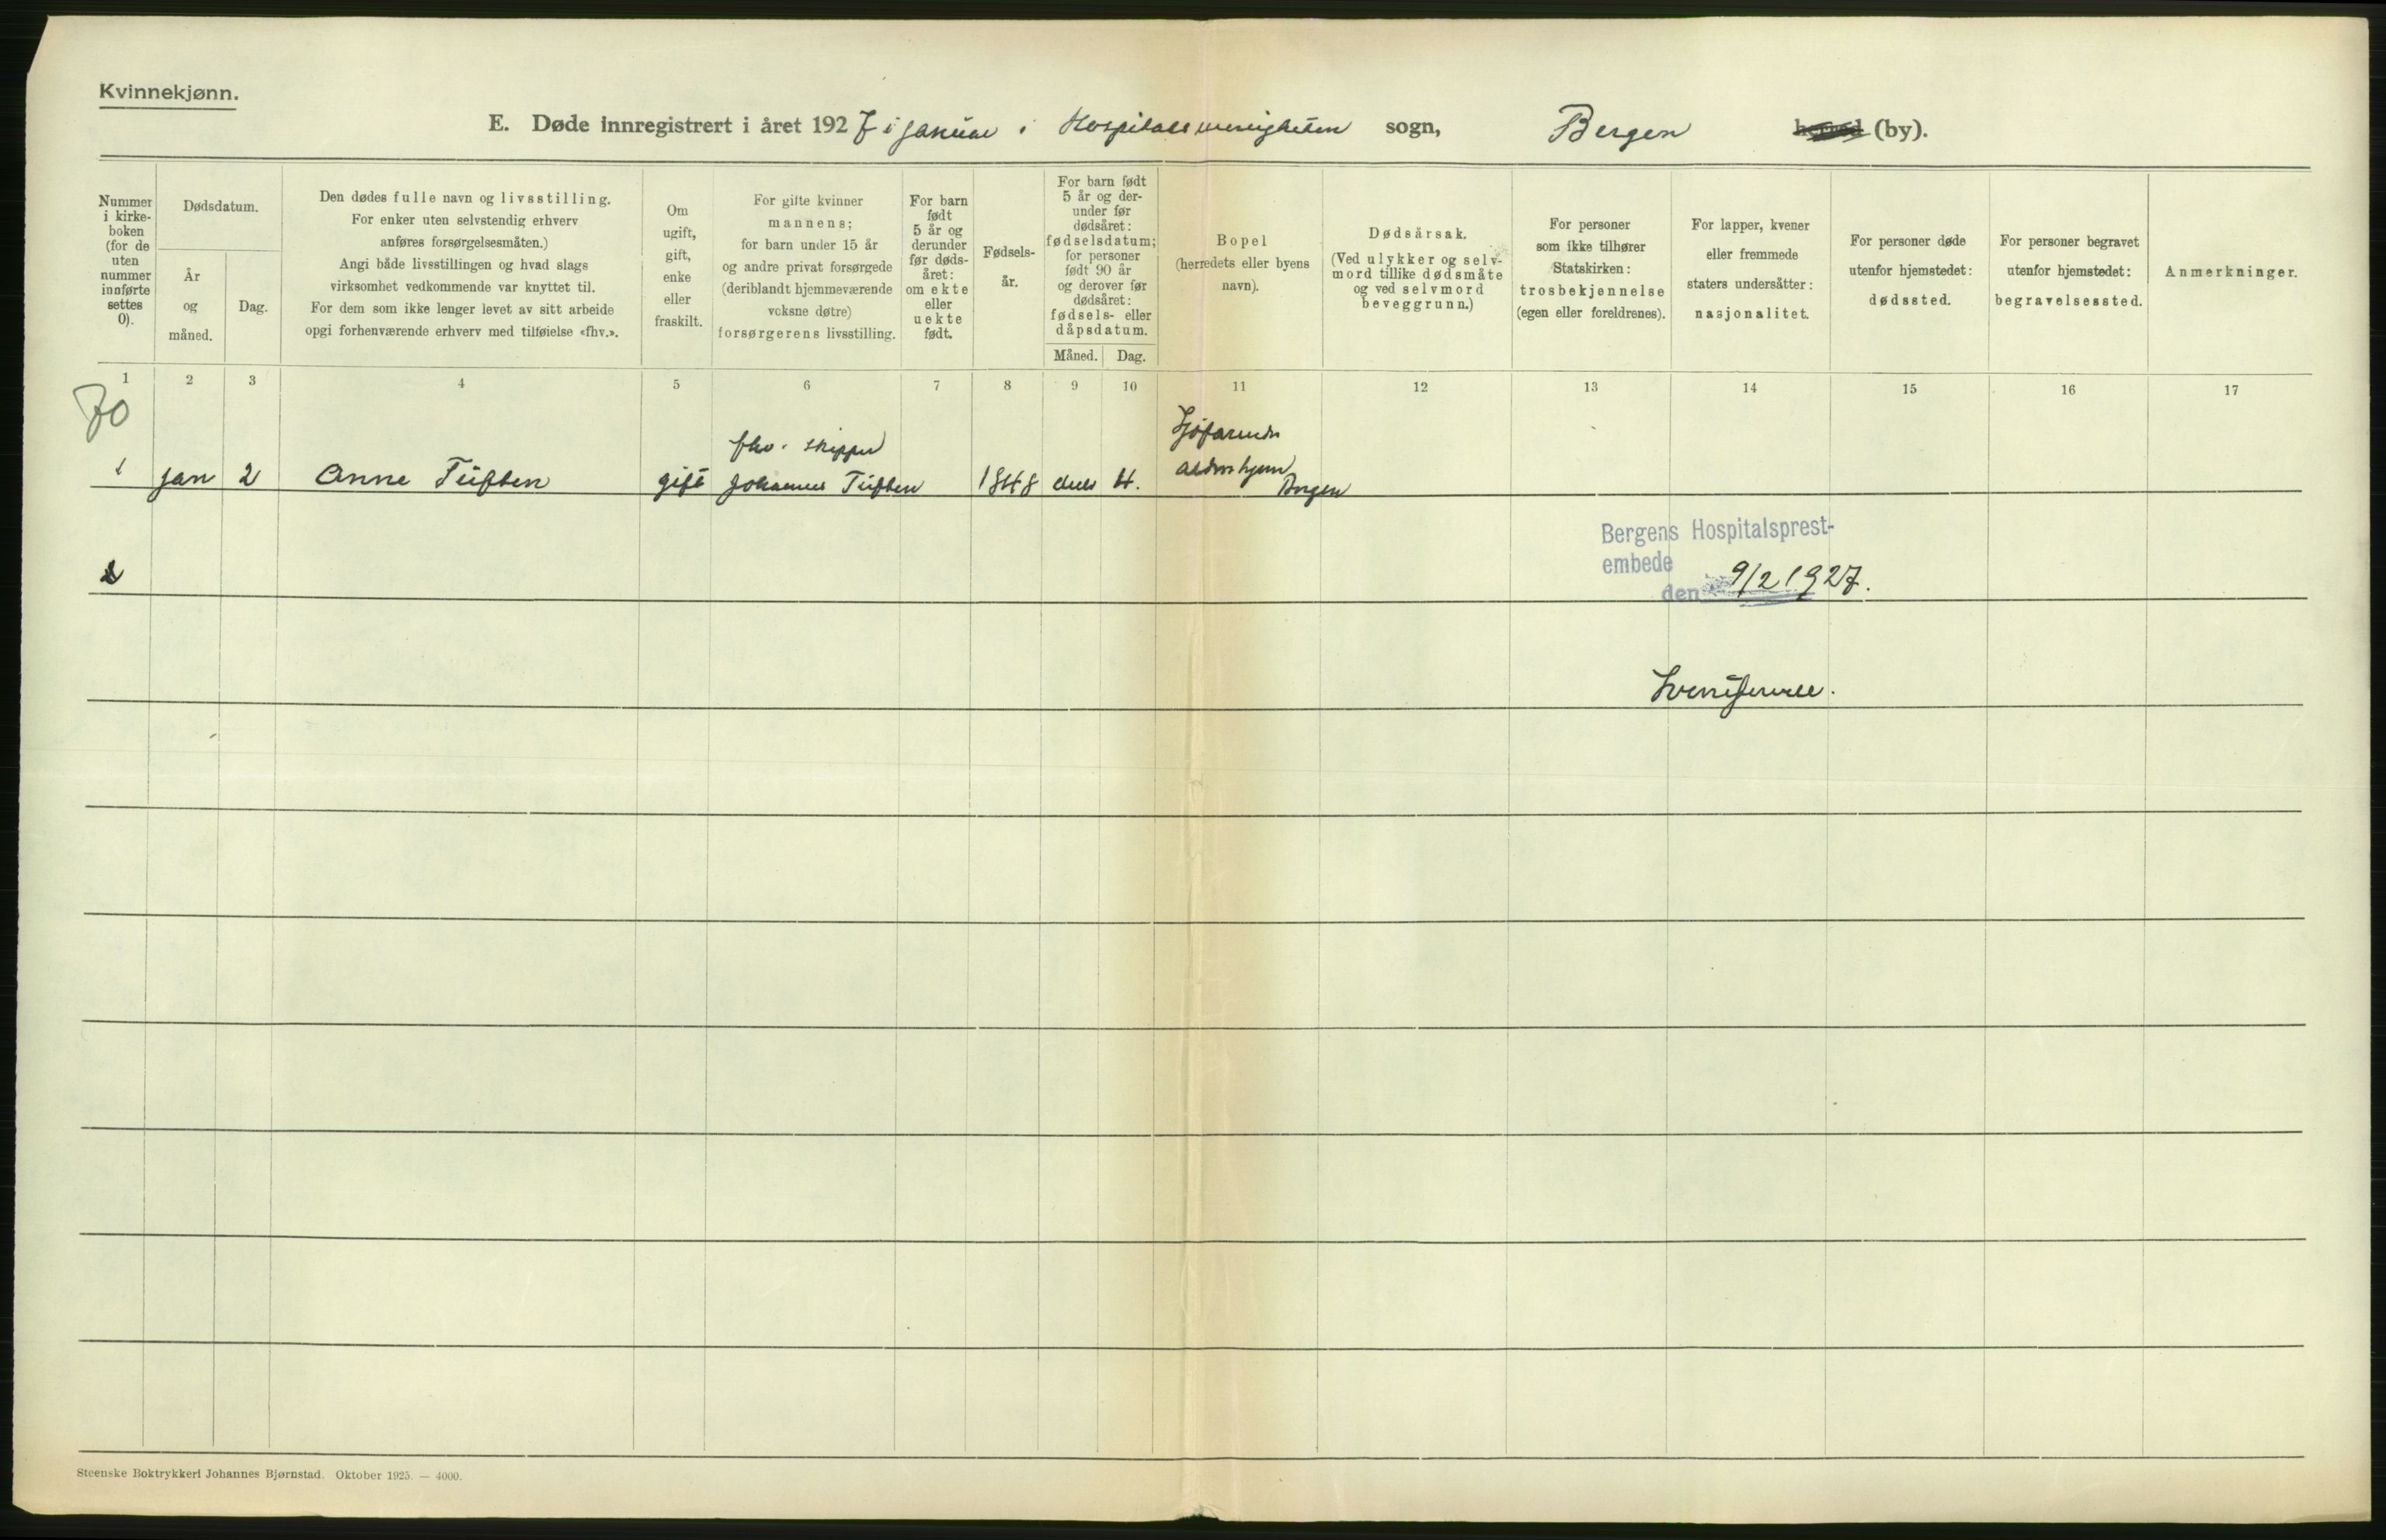 Kvinnekjønn.
E. Døde innregistrert i året 1927 i januar i Hospitalsmenigheten sogn, Bergen herred (by).
Nummer i kirkeboken (for de uten nummer innførte settes 0).
Dødsdatum.
År og måned.
Dag.
Den dødes fulle navn og livsstilling.
For enker uten selvstendig erhverv
anføres forsørgelsesmåten.)
Angi både livsstillingen og hvad slags
virksomhet vedkommende var knyttet til.
For dem som ikke lenger levet av sitt arbeide
opgi forhenværende erhverv med tilføielse «fhv.».
Om
ugift,
gift,
enke
eller
fraskilt.
For gifte kvinner
mannens;
for barn under 15 år
og andre privat forsørgede
(deriblandt hjemmeværende
voksne døtre)
forsørgerens livsstilling.
For barn
født
5 år og
derunder
før døds-
året:
om ekte
eller
uekte
født.
Fødsels-
år.
For barn født
5 år og der-
under før
dødsåret:
fødselsdatum;
for personer
født 90 år
og derover før
dødsåret:
fødsels- eller
dåpsdatum.
Måned. Dag.
Bopel
(herredets eller byens
navn).
Dødsårsak.
(Ved ulykker og selv-
mord tillike dødsmåte
og ved selvmord
beveggrunn.)
For personer
som ikke tilhører
Statskirken:
trosbekjennelse
(egen eller foreldrenes).
For lapper, kvener
eller fremmede
staters undersåtter:
nasjonalitet.
For personer døde
utenfor hjemstedet:
dødssted.
For personer begravet
utenfor hjemstedet:
begravelsessted.
Anmerkninger.
1 2 3 4 5 6 7 8 9 10 11 12 13 14 15 16 17
70
fhv. skipper
1 jan 2 Anne Tüften gift Johannes Tüften 1848 4.
aldershjem
Bergen
2
Bergens Hospitalsprest-
embede
den 9/2 1927.
Steenske Boktrykkeri Johannes Bjørnstad. Oktober 1925. — 4000.